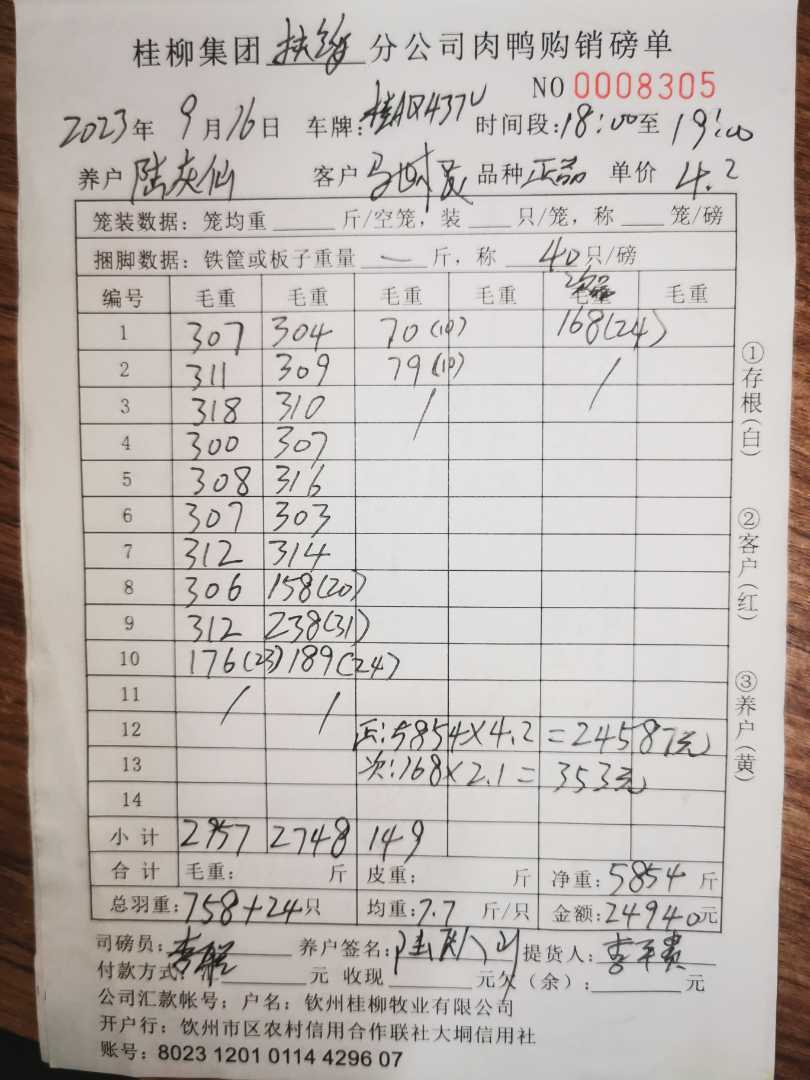 桂柳集团扶绥分公司肉鸭购销磅单
NO 0008305
2023年 9月16日 车牌: 时间段:18:00至19:00
养户 客户 品种 正品 单价 4.2
笼装数据: 笼均重 斤/空笼, 装 只/笼, 称 笼/磅
捆脚数据: 铁筐或板子重量 — 斤, 称 40只/磅
编号 毛重 毛重 毛重 毛重 毛重 毛重
1 307 304 70(10) 168(24)
2 311 309 79(10) /
3 318 310 /
4 300 307
5 308 316
6 307 303
7 312 314
8 306 158(20)
9 312 238(31)
10 176(23) 189(24)
11 / /
12 正:5854×4.2=24587元
13 次:168×2.1=353元
14
小计 2957 2748 149
合计 毛重: 斤 皮重: 斤 净重:5854斤
总羽重:758+24只 均重:7.7斤/只 金额:24940元
司磅员: 养户签名: 提货人:
付款方式: 元 收现 元欠(余): 元
公司汇款帐号; 户名; 钦州桂柳牧业有限公司
开户行: 钦州市区农村信用合作联社大垌信用社
账号: 8023 1201 0114 4296 07
①存根(白)
②客户(红)
③养户(黄)